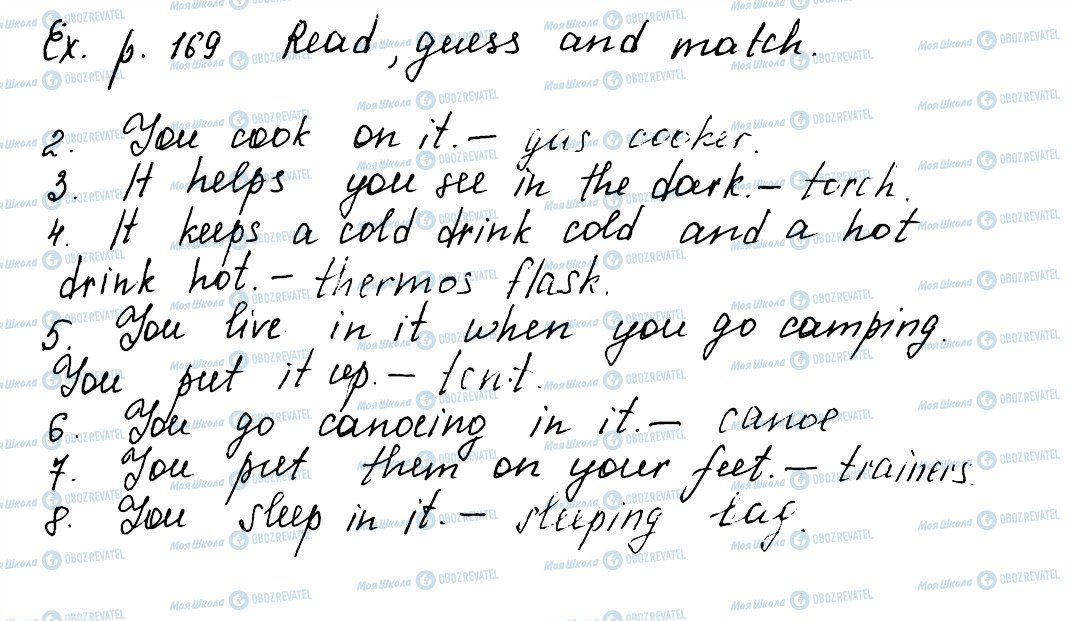 Ex. p. 169 Read, guess and match.
2. You cook on it. – gas cooker.
3. It helps you see in the dark. – torch.
4. It keeps a cold drink cold and a hot
drink hot. – thermos flask.
5. You live in it when you go camping.
You put it up. – tent.
6. You go canoeing in it. – canoe
7. You put them on your feet. – trainers.
8. You sleep in it. – sleeping bag.